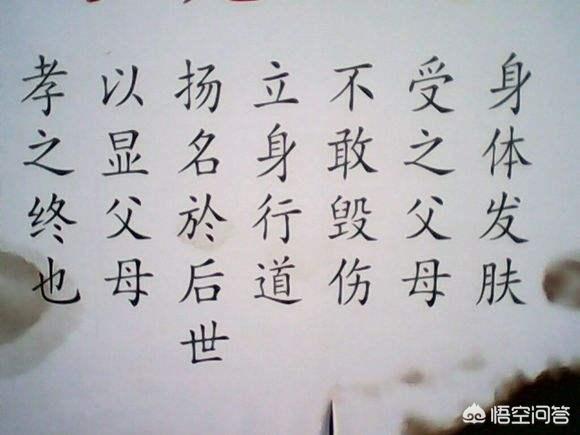 身体发肤
受之父母
不敢毁伤
立身行道
扬名於后世
以显父母
孝之终也
悟空问答